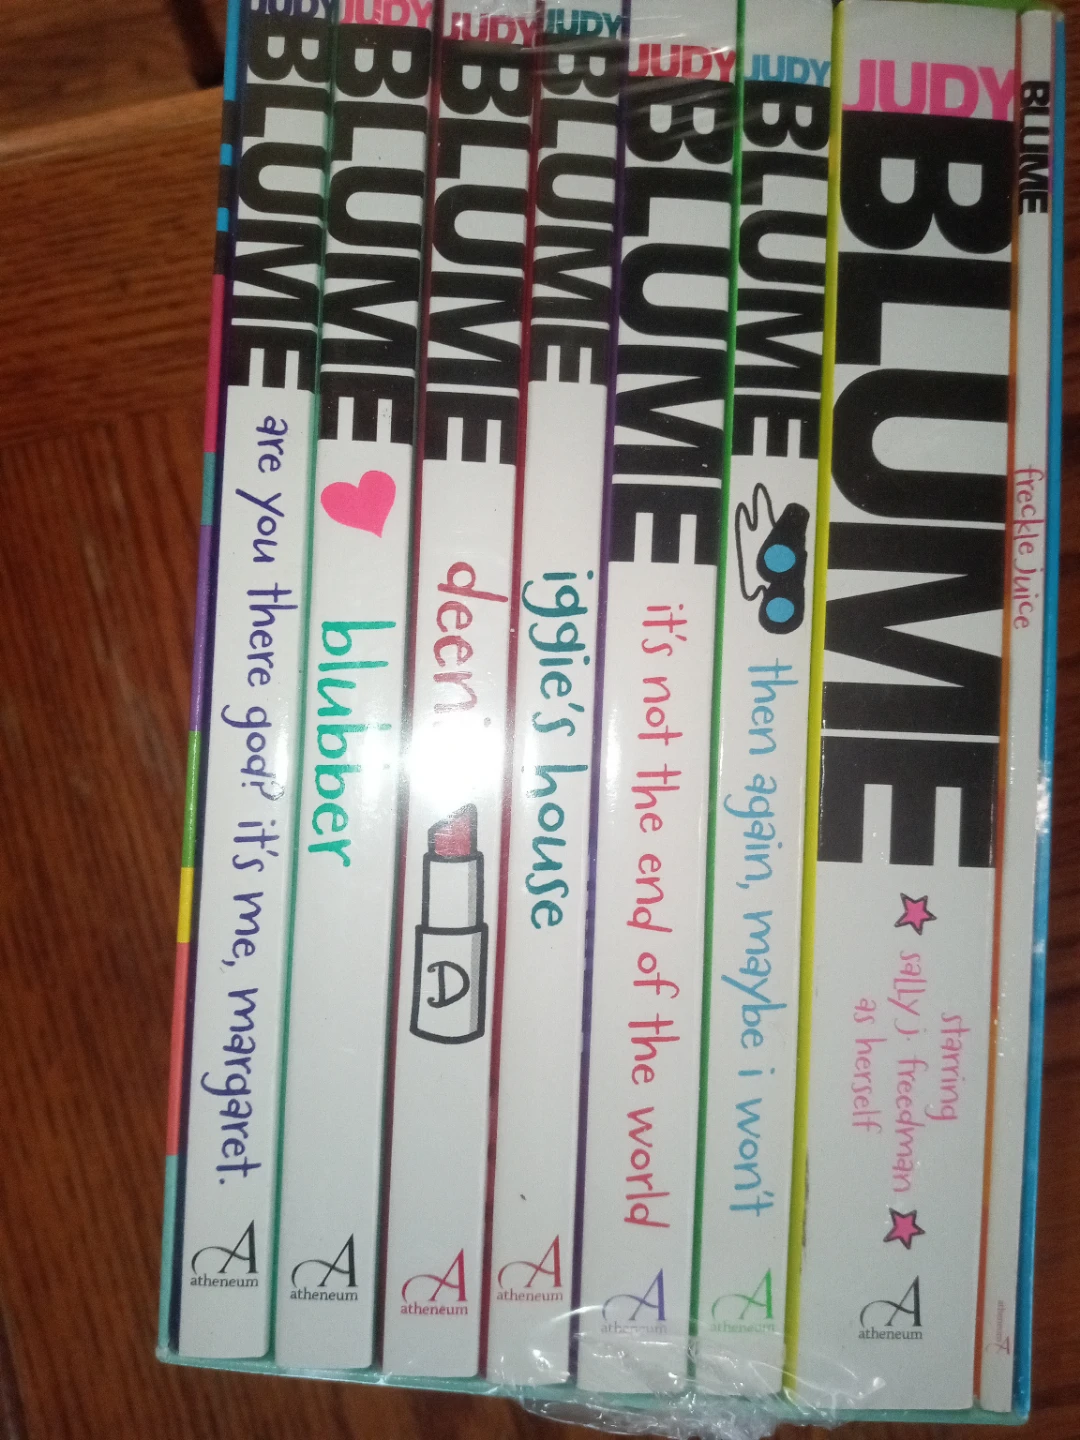 JUDY
BLUME
are you there god? it's me, margaret.
A
atheneum
JUDY
BLUME
blubber
A
atheneum
JUDY
BLUME
A
A
atheneum
JUDY
BLUME
iggie's house
A
atheneum
JUDY
BLUME
it's not the end of the world
A
atheneum
JUDY
BLUME
then again, maybe i won't
A
atheneum
JUDY
BLUME
starring
sally j. freedman
as herself
A
atheneum
BLUME
freckle juice
atheneum
A